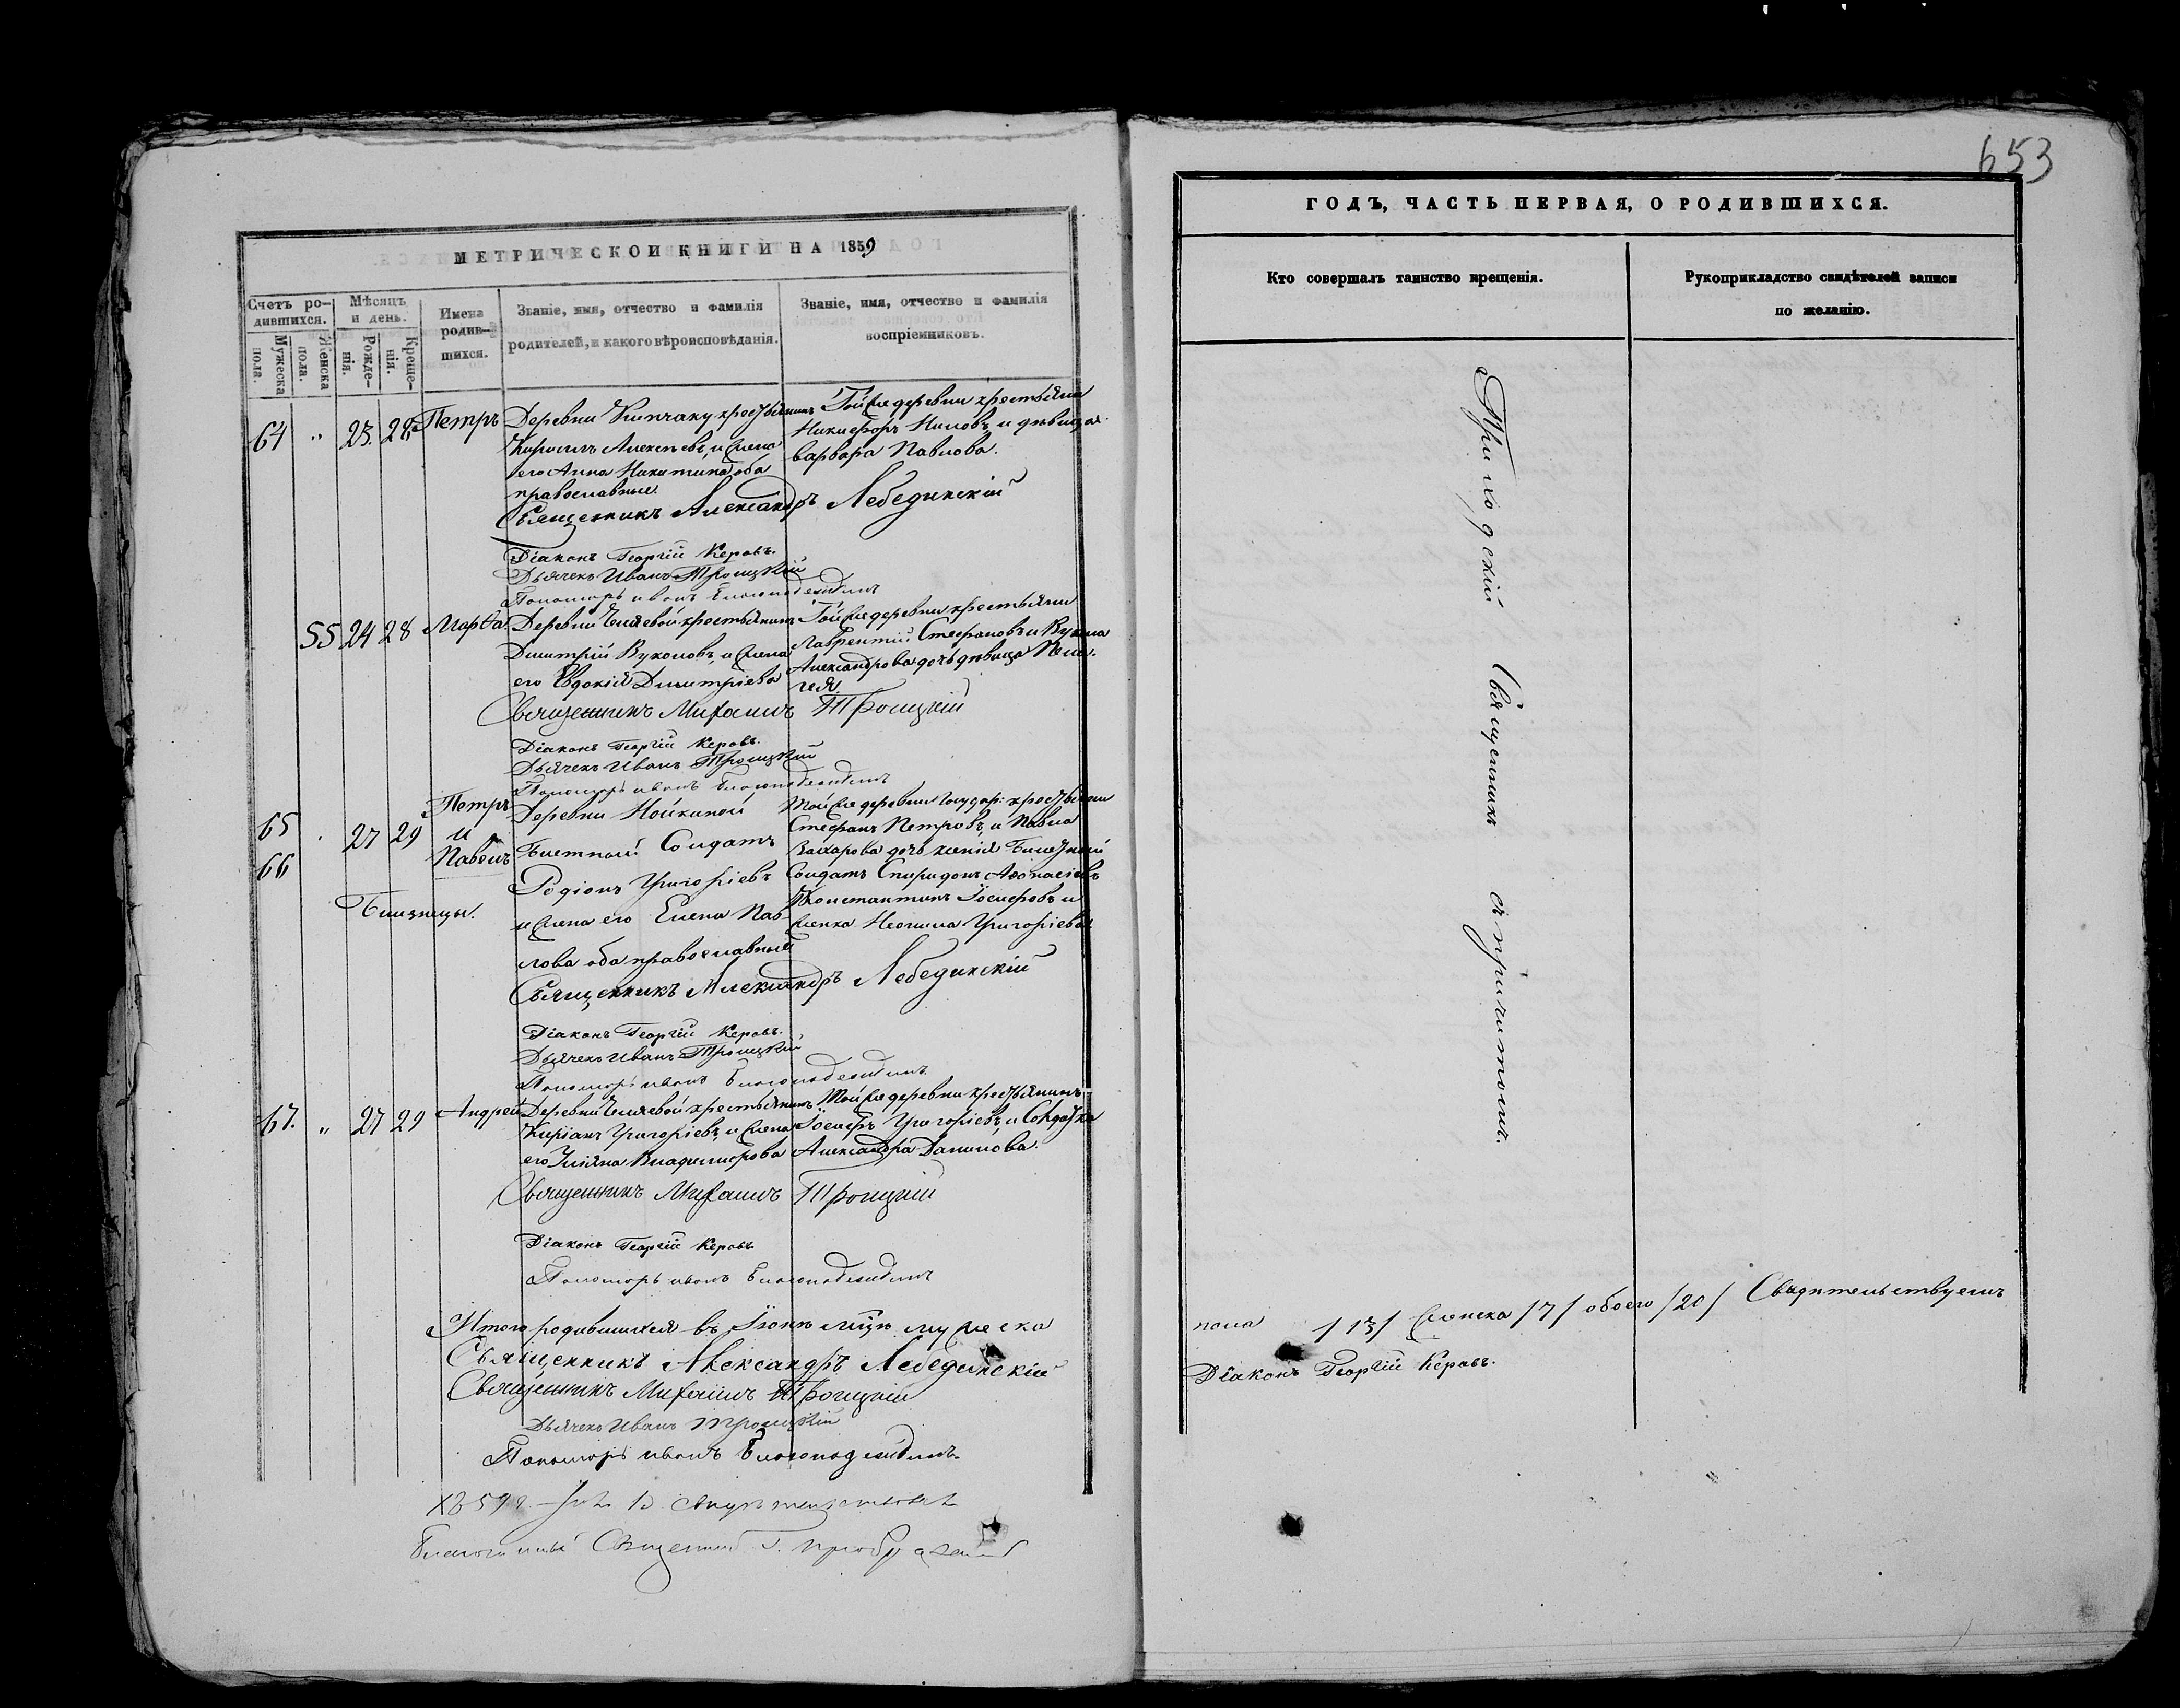 653
МЕТРИЧЕСКОЙ КНИГИ НА 1859
Счетъ ро-
дившихся.
Мужеска
пола.
Женска
пола.
Мѣсяцъ
и день.
Рожде-
нія.
Креще-
нія.
Имена
родив-
шихся.
Званіе, имя, отчество и фамилія
родителей, и какого вѣроисповѣданія.
Званіе, имя, отчество и фамилія
воспріемниковъ.
64 " 23. 28 Петръ
Деревни крестьянинъ
Кирилъ Алексѣевъ, и жена
его Анна Никитина оба
православные.
Той же деревни крестьянинъ
Никифоръ Ниловъ, и дѣвица
варвара Павлова.
Священникъ Александръ Лебединскій
Діаконъ Георгій Керовъ.
Дьячекъ Иванъ Троицкій
Пономарь иванъ
55 24 28 Марѳа
Деревни крестьянинъ
Димитрій Вуколовъ, и жена
его Евдокія Димитріева
Той же деревни крестьяни
Лаврентій Стефановъ и Вукола
Александрова дочь дѣвица Пела-
гея.
Священникъ Михаилъ Троицкій
Діаконъ Георгій Керовъ.
Дьячекъ Иванъ Троицкій
Пономарь иванъ
65
66
27 29
Петръ
и
Павелъ
Близнецы.
Деревни Нойкиной
Билетный Солдатъ
Родіонъ Григоріевъ
и жена его Елена Пав-
лова оба православные
Той же деревни Государ: крестьяни
Стефанъ Петровъ, и Павла
Захарова дочь ксенія Билетный
Солдатъ Спиридонъ Аѳонасіевъ
Константинъ Іосифовъ и
женка Неонила Григоріева
Священникъ Александръ Лебединскій
Діаконъ Георгій Керовъ.
Дьячекъ Иванъ Троицкій
Пономарь иванъ
67. " 27 29 Андрей
Деревни крестьянинъ
Киріакъ Григоріевъ, и жена
его Уліяна Владимирова
Той же деревни крестьянинъ
Іосифъ Григоріевъ, и Солдатка
Александра Данилова.
Священникъ Михаилъ Троицкій
Діаконъ Георгій Керовъ
Пономарь иванъ
Итого родившихся въ Іюнѣ мцѣ мужеска
Священникъ Александръ Лебединскій
Священникъ Михаилъ Троицкій
Дьячекъ Иванъ Троицкій
Пономарь иванъ
Благочинный Священникъ
ГОДЪ, ЧАСТЬ ПЕРВАЯ, О РОДИВШИХСЯ.
Кто совершалъ таинство крещенія.
Рукоприкладство свидѣтелей записи
по желанію.
Приходскій Священникъ съ причитомъ.
пола /13/ женска /7/ обоего /20/ Свидѣтельствуемъ
Діаконъ Георгій Керовъ.